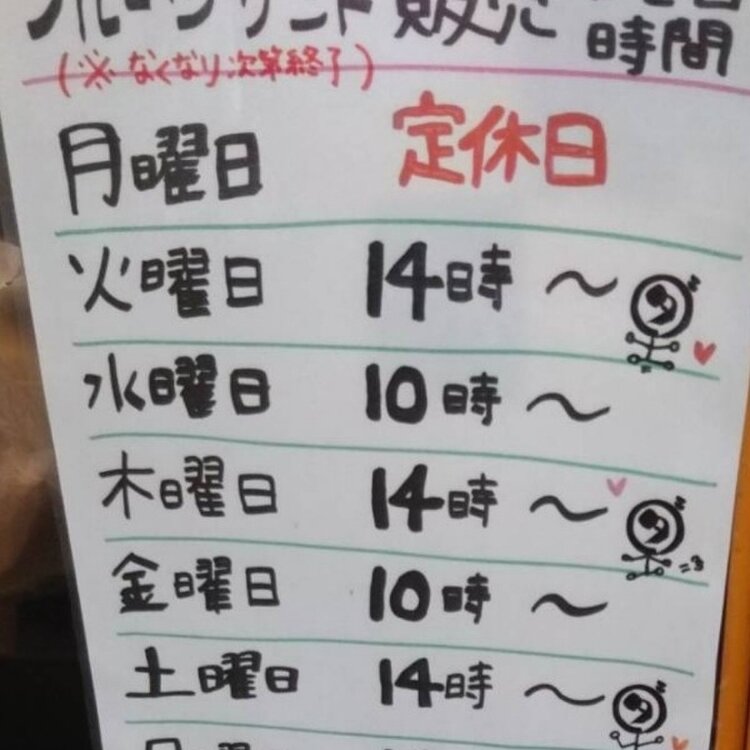 フルーツサンド 販売
時間
(※なくなり次第終了)
月曜日 定休日
火曜日 14時～
水曜日 10時～
木曜日 14時～
金曜日 10時～
土曜日 14時～